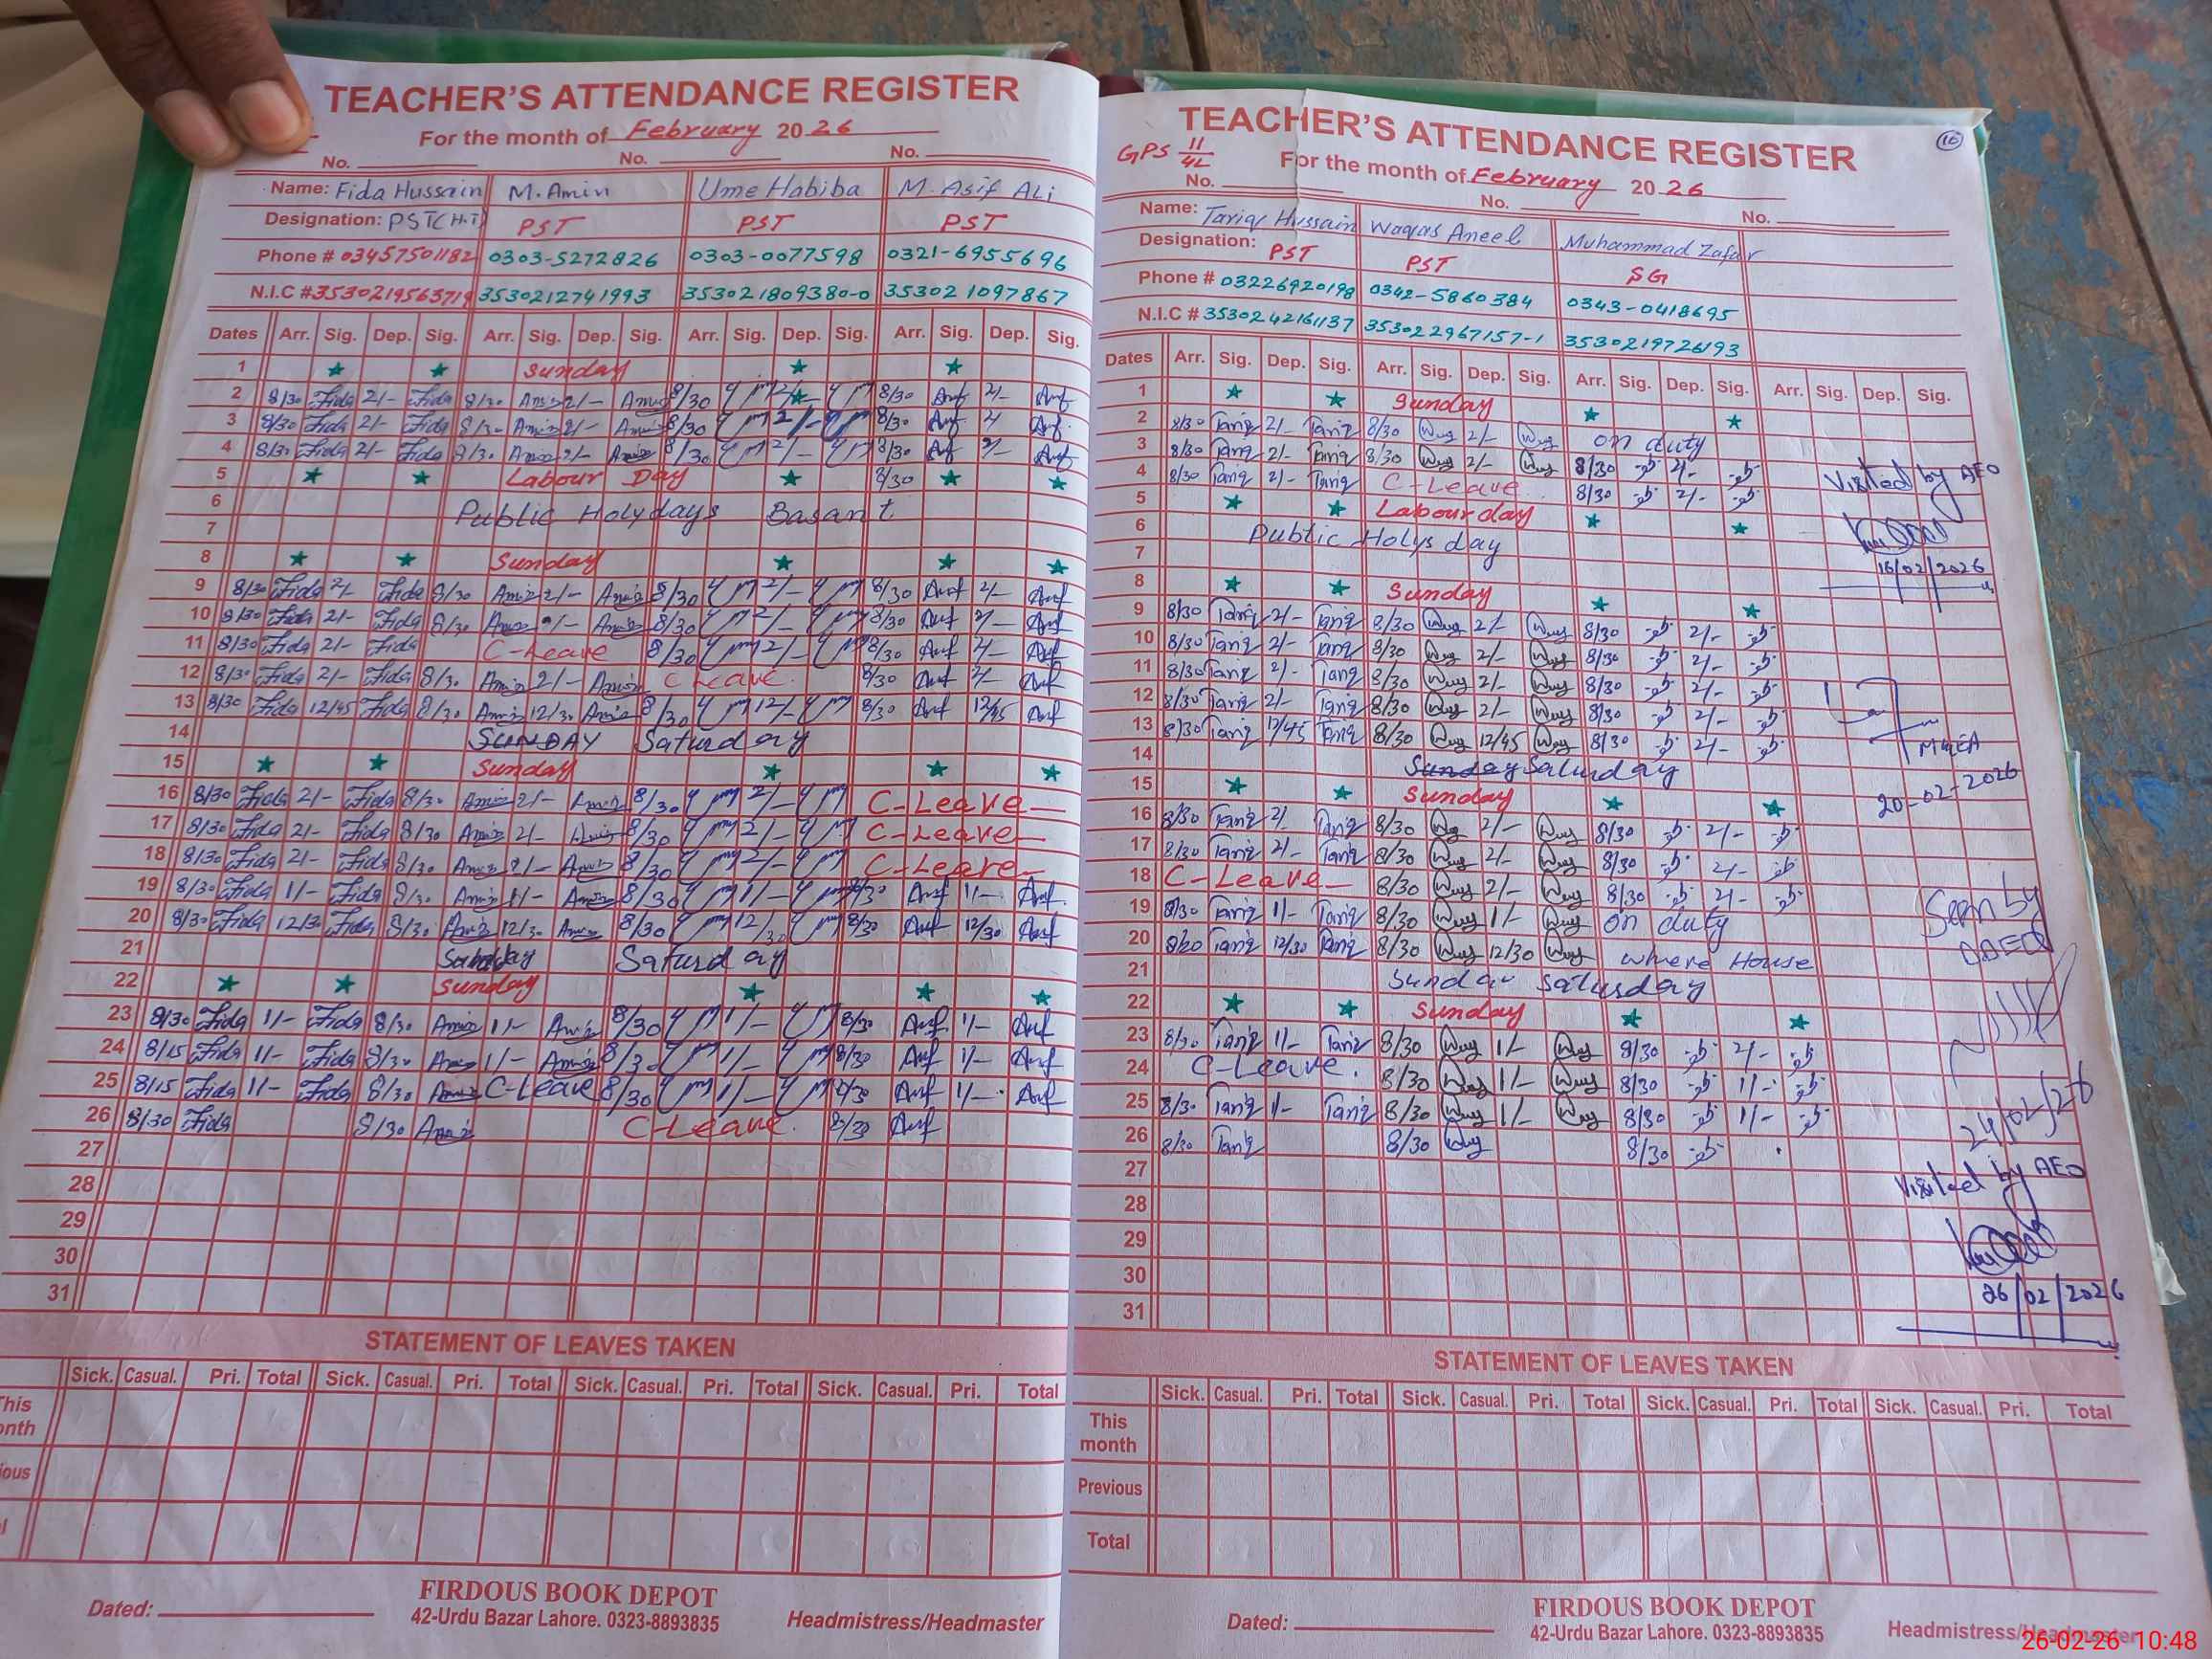 TEACHER'S ATTENDANCE REGISTER
For the month of February 2026
No. No. No.
Name: Fida Hussain M. Amin Ume Habiba M. Asif Ali
Designation: PST(H.T) PST PST PST
Phone # 03457501182 0303-5272826 0303-0077598 0321-6955696
N.I.C # 3530219563719 3530212741993 353021809380-0 353021097867
Dates Arr. Sig. Dep. Sig. Arr. Sig. Dep. Sig. Arr. Sig. Dep. Sig. Arr. Sig. Dep. Sig.
1 Sunday
2 8/30 Fida 2/- Fida 8/30 Amin 2/- Amin 8/30 2/- 8/30 Asif 2/- Asif
3 8/30 Fida 2/- Fida 8/30 Amin 2/- Amin 8/30 2/- 8/30 Asif 2 Asif
4 8/30 Fida 2/- Fida 8/30 Amin 2/- Amin 8/30 2/- 8/30 Asif 2/- Asif
5 Labour Day 8/30
6 Public Holydays Basant
7
8 Sunday
9 8/30 Fida 2/- Fida 8/30 Amin 2/- Amin 8/30 2/- 8/30 Asif 2/- Asif
10 8/30 Fida 2/- Fida 8/30 Amin 2/- Amin 8/30 2/- 8/30 Asif 2/- Asif
11 8/30 Fida 2/- Fida C-Leave 8/30 2/- 8/30 Asif 2/- Asif
12 8/30 Fida 2/- Fida 8/30 Amin 2/- Amin C Leave. 8/30 Asif 2/- Asif
13 8/30 Fida 12/45 Fida 8/30 Amin 12/30 Amin 8/30 12/- 8/30 Asif 12/45 Asif
14 SUNDAY Saturday
15 Sunday
16 8/30 Fida 2/- Fida 8/30 Amin 2/- Amin 8/30 2/- C-Leave
17 8/30 Fida 2/- Fida 8/30 Amin 2/- Amin 8/30 2/- C-Leave
18 8/30 Fida 2/- Fida 8/30 Amin 2/- Amin 8/30 2/- C-Leave
19 8/30 Fida 1/- Fida 8/30 Amin 1/- Amin 8/30 1/- 8/30 Asif 1/- Asif
20 8/30 Fida 12/30 Fida 8/30 Amin 12/30 Amin 8/30 12/30 8/30 Asif 12/30 Asif
21 Saturday
22 Sunday
23 8/30 Fida 1/- Fida 8/30 Amin 1/- Amin 8/30 1/- 8/30 Asif 1/- Asif
24 8/15 Fida 1/- Fida 8/30 Amin 1/- Amin 8/30 1/- 8/30 Asif 1/- Asif
25 8/15 Fida 1/- Fida 8/30 Amin C-Leave 8/30 1/- 8/30 Asif 1/- Asif
26 8/30 Fida 8/30 Amin C-Leave. 8/30 Asif
27
28
29
30
31
STATEMENT OF LEAVES TAKEN
Sick. Casual. Pri. Total Sick. Casual. Pri. Total Sick. Casual. Pri. Total Sick. Casual. Pri. Total
This
onth
ious
l
Dated:
FIRDOUS BOOK DEPOT
42-Urdu Bazar Lahore. 0323-8893835
Headmistress/Headmaster
TEACHER'S ATTENDANCE REGISTER
16
GPS 11/4L
For the month of February 2026
No. No. No.
Name: Tariq Hussain Waqas Aneel Muhammad Zafar
Designation: PST PST SG
Phone # 03226920198 0342-5860384 0343-0418695
N.I.C # 3530242161137 353022967157-1 3530219726193
Dates Arr. Sig. Dep. Sig. Arr. Sig. Dep. Sig. Arr. Sig. Dep. Sig. Arr. Sig. Dep. Sig.
1 Sunday
2 8/30 Tariq 2/- Tariq 8/30 Waq 2/- Waq on duty
3 8/30 Tariq 2/- Tariq 8/30 Waq 2/- Waq 8/30 2/-
4 8/30 Tariq 2/- Tariq C-Leave 8/30 2/-
5 Labour day
6 Public Holys day
7
8 Sunday
9 8/30 Tariq 2/- Tariq 8/30 Waq 2/- Waq 8/30 2/-
10 8/30 Tariq 2/- Tariq 8/30 Waq 2/- Waq 8/30 2/-
11 8/30 Tariq 2/- Tariq 8/30 Waq 2/- Waq 8/30 2/-
12 8/30 Tariq 2/- Tariq 8/30 Waq 2/- Waq 8/30 2/-
13 8/30 Tariq 12/45 Tariq 8/30 Waq 12/45 Waq 8/30 2/-
14 Sunday Saturday
15 Sunday
16 8/30 Tariq 2/ Tariq 8/30 Waq 2/- Waq 8/30 2/-
17 8/30 Tariq 2/- Tariq 8/30 Waq 2/- Waq 8/30 2/-
18 C-Leave 8/30 Waq 2/- Waq 8/30 2/-
19 8/30 Tariq 1/- Tariq 8/30 Waq 1/- Waq on duty
20 8/30 Tariq 12/30 Tariq 8/30 Waq 12/30 Waq where House
21 Sunday Saturday
22 Sunday
23 8/30 Tariq 1/- Tariq 8/30 Waq 1/- Waq 8/30 2/-
24 C-Leave. 8/30 Waq 1/- Waq 8/30 1/-
25 8/30 Tariq 1/- Tariq 8/30 Waq 1/- Waq 8/30 1/-
26 8/30 Tariq 8/30 Waq 8/30
27
28
29
30
31
Visited by AEO
16/02/2026
MEA
20-02-2026
Seen by
DDEO
24/02/26
Visited by AEO
26/02/2026
STATEMENT OF LEAVES TAKEN
Sick. Casual. Pri. Total Sick. Casual. Pri. Total Sick. Casual. Pri. Total Sick. Casual. Pri. Total
This
month
Previous
Total
Dated:
FIRDOUS BOOK DEPOT
42-Urdu Bazar Lahore. 0323-8893835
Headmistress/Headmaster
26-02-26 10:48